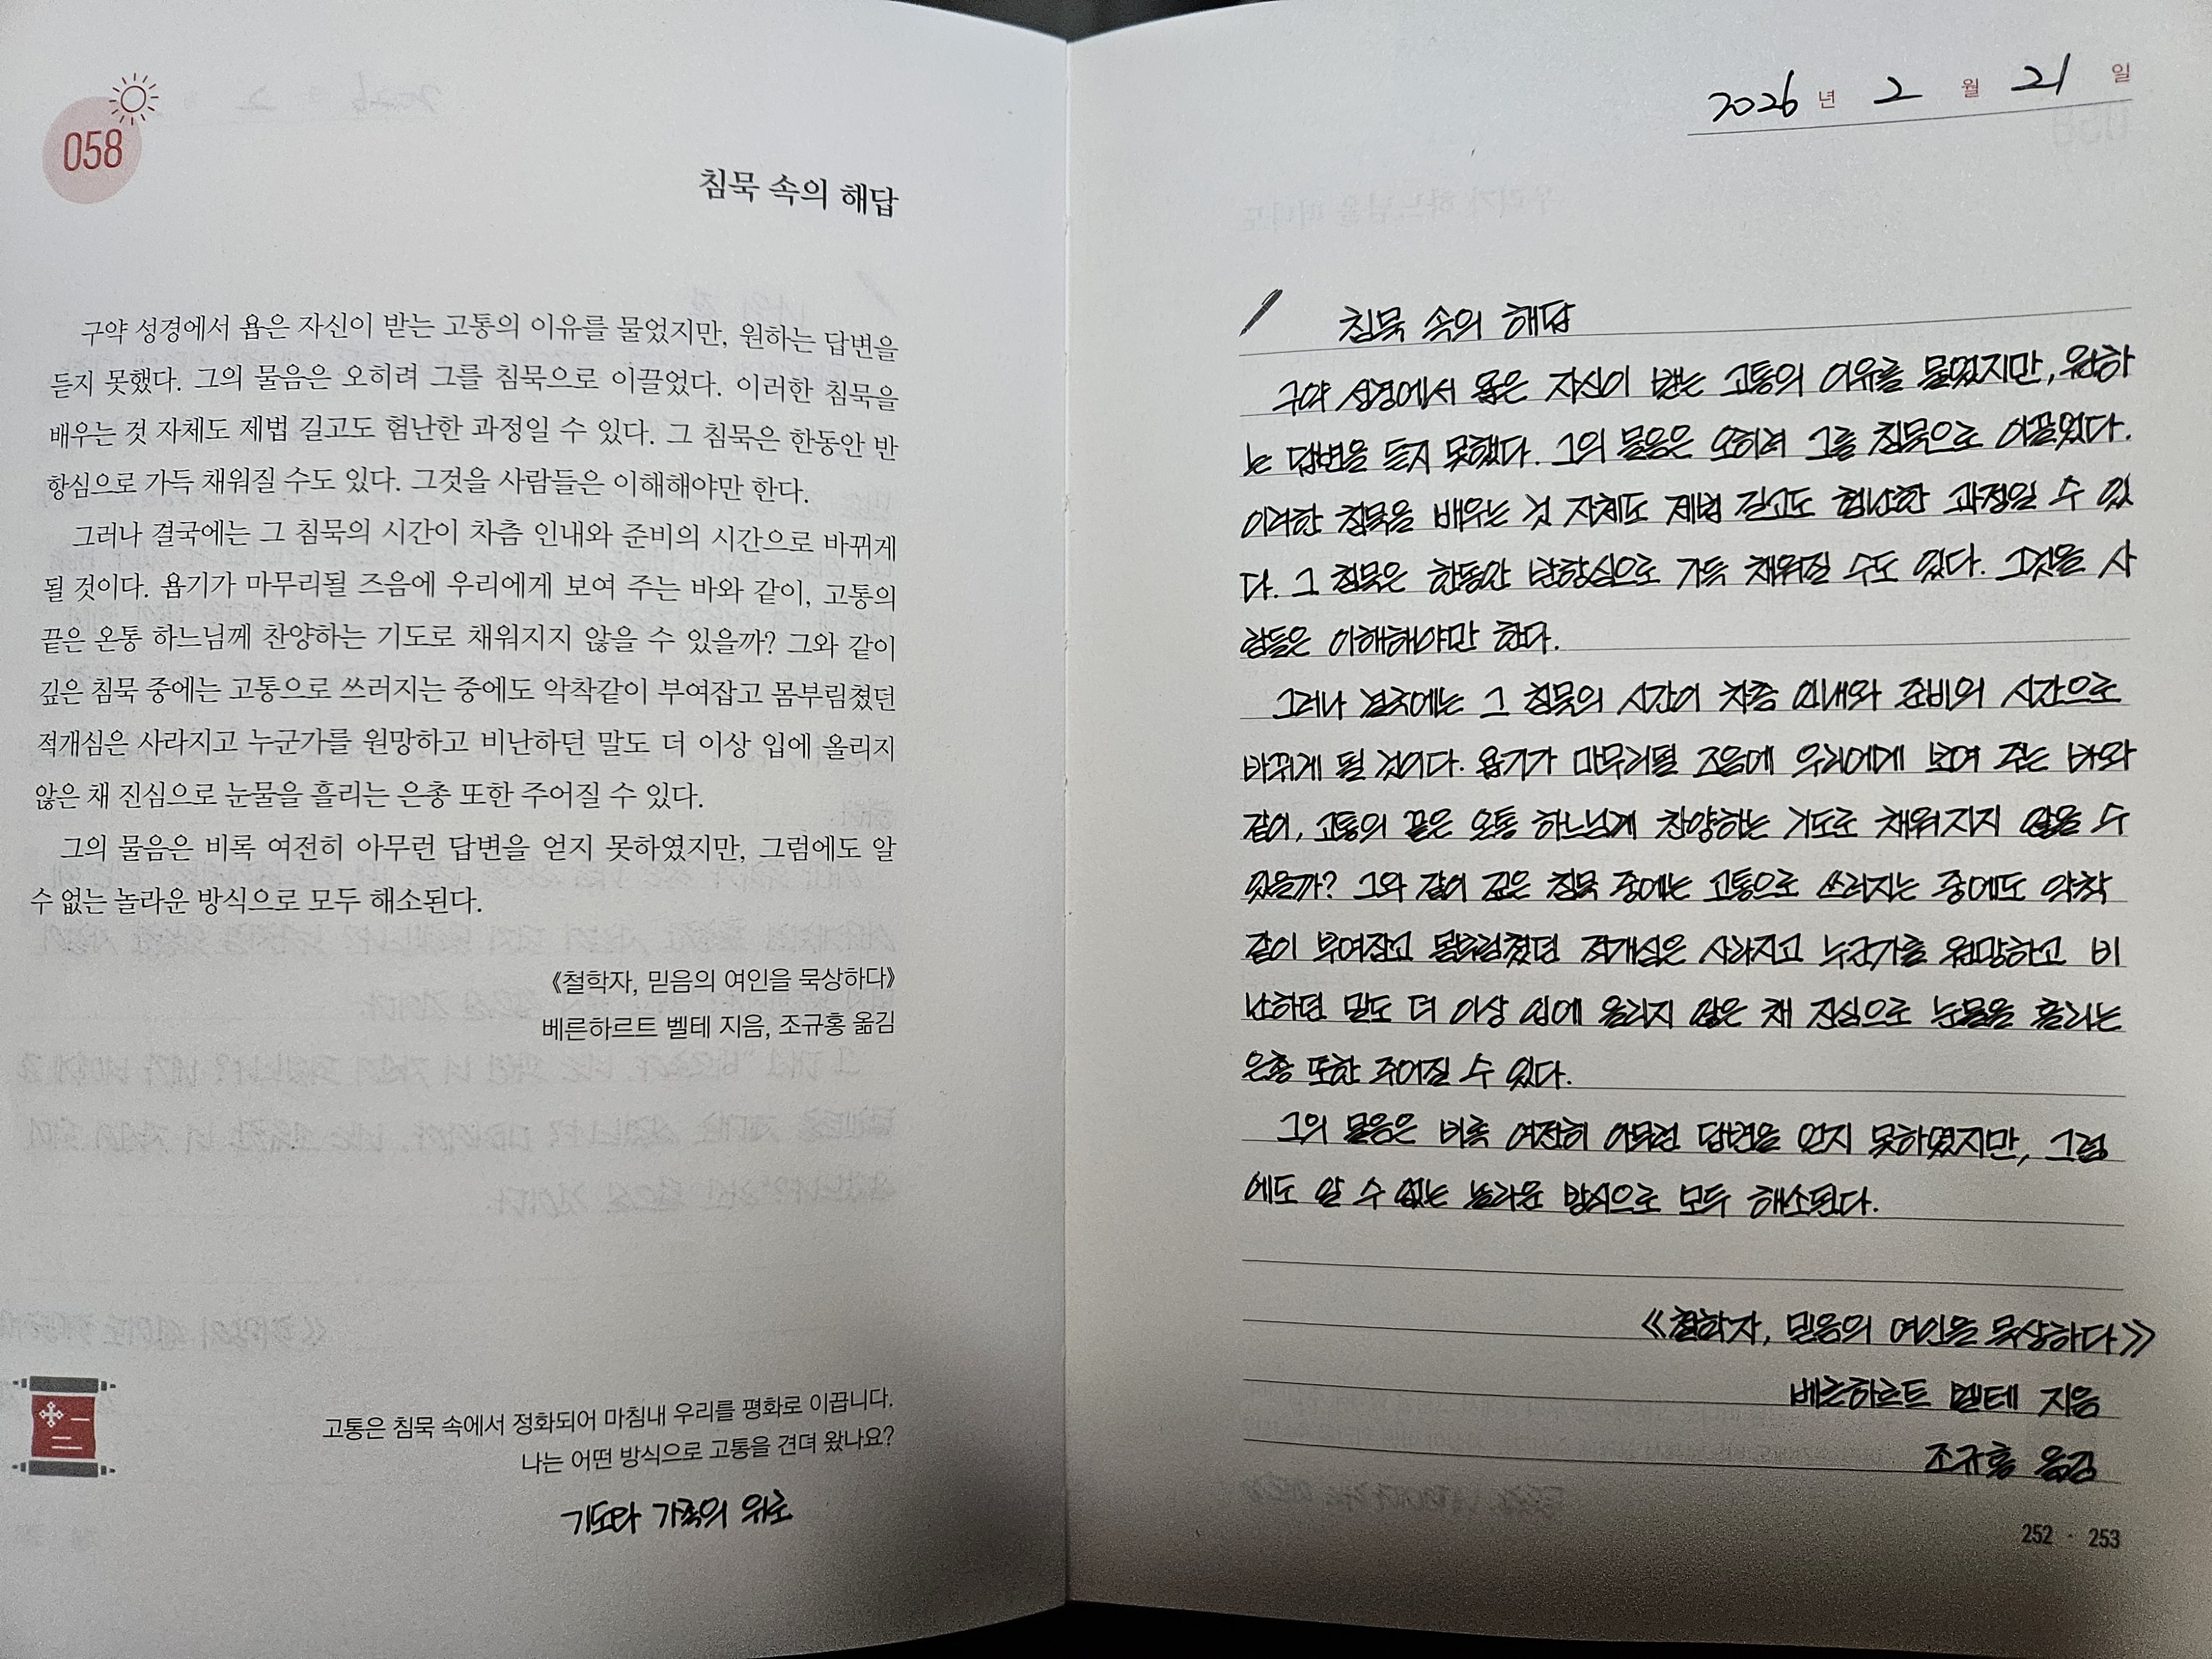 058
침묵 속의 해답
구약 성경에서 욥은 자신이 받는 고통의 이유를 물었지만, 원하는 답변을
듣지 못했다. 그의 물음은 오히려 그를 침묵으로 이끌었다. 이러한 침묵을
배우는 것 자체도 제법 길고도 험난한 과정일 수 있다. 그 침묵은 한동안 반
항심으로 가득 채워질 수도 있다. 그것을 사람들은 이해해야만 한다.
그러나 결국에는 그 침묵의 시간이 차츰 인내와 준비의 시간으로 바뀌게
될 것이다. 욥기가 마무리될 즈음에 우리에게 보여 주는 바와 같이, 고통의
끝은 온통 하느님께 찬양하는 기도로 채워지지 않을 수 있을까? 그와 같이
깊은 침묵 중에는 고통으로 쓰러지는 중에도 악착같이 부여잡고 몸부림쳤던
적개심은 사라지고 누군가를 원망하고 비난하던 말도 더 이상 입에 올리지
않은 채 진심으로 눈물을 흘리는 은총 또한 주어질 수 있다.
그의 물음은 비록 여전히 아무런 답변을 얻지 못하였지만, 그럼에도 알
수 없는 놀라운 방식으로 모두 해소된다.
《철학자, 믿음의 여인을 묵상하다》
베른하르트 벨테 지음, 조규홍 옮김
고통은 침묵 속에서 정화되어 마침내 우리를 평화로 이끕니다.
나는 어떤 방식으로 고통을 견뎌 왔나요?
기도와 가족의 위로
2026 년 2 월 21 일
침묵 속의 해답
구약 성경에서 욥은 자신이 받는 고통의 이유를 물었지만, 원하
는 답변을 듣지 못했다. 그의 물음은 오히려 그를 침묵으로 이끌었다.
이러한 침묵을 배우는 것 자체도 제법 길고도 험난한 과정일 수 있
다. 그 침묵은 한동안 반항심으로 가득 채워질 수도 있다. 그것을 사
람들은 이해해야만 한다.
그러나 결국에는 그 침묵의 시간이 차츰 인내와 준비의 시간으로
바뀌게 될 것이다. 욥기가 마무리될 즈음에 우리에게 보여 주는 바와
같이, 고통의 끝은 온통 하느님께 찬양하는 기도로 채워지지 않을 수
있을까? 그와 같이 깊은 침묵 중에는 고통으로 쓰러지는 중에도 악착
같이 부여잡고 몸부림쳤던 적개심은 사라지고 누군가를 원망하고 비
난하던 말도 더 이상 입에 올리지 않은 채 진심으로 눈물을 흘리는
은총 또한 주어질 수 있다.
그의 물음은 비록 여전히 아무런 답변을 얻지 못하였지만, 그럼
에도 알 수 없는 놀라운 방식으로 모두 해소된다.
《철학자, 믿음의 여인을 묵상하다》
베른하르트 벨테 지음
조규홍 옮김
252 · 253